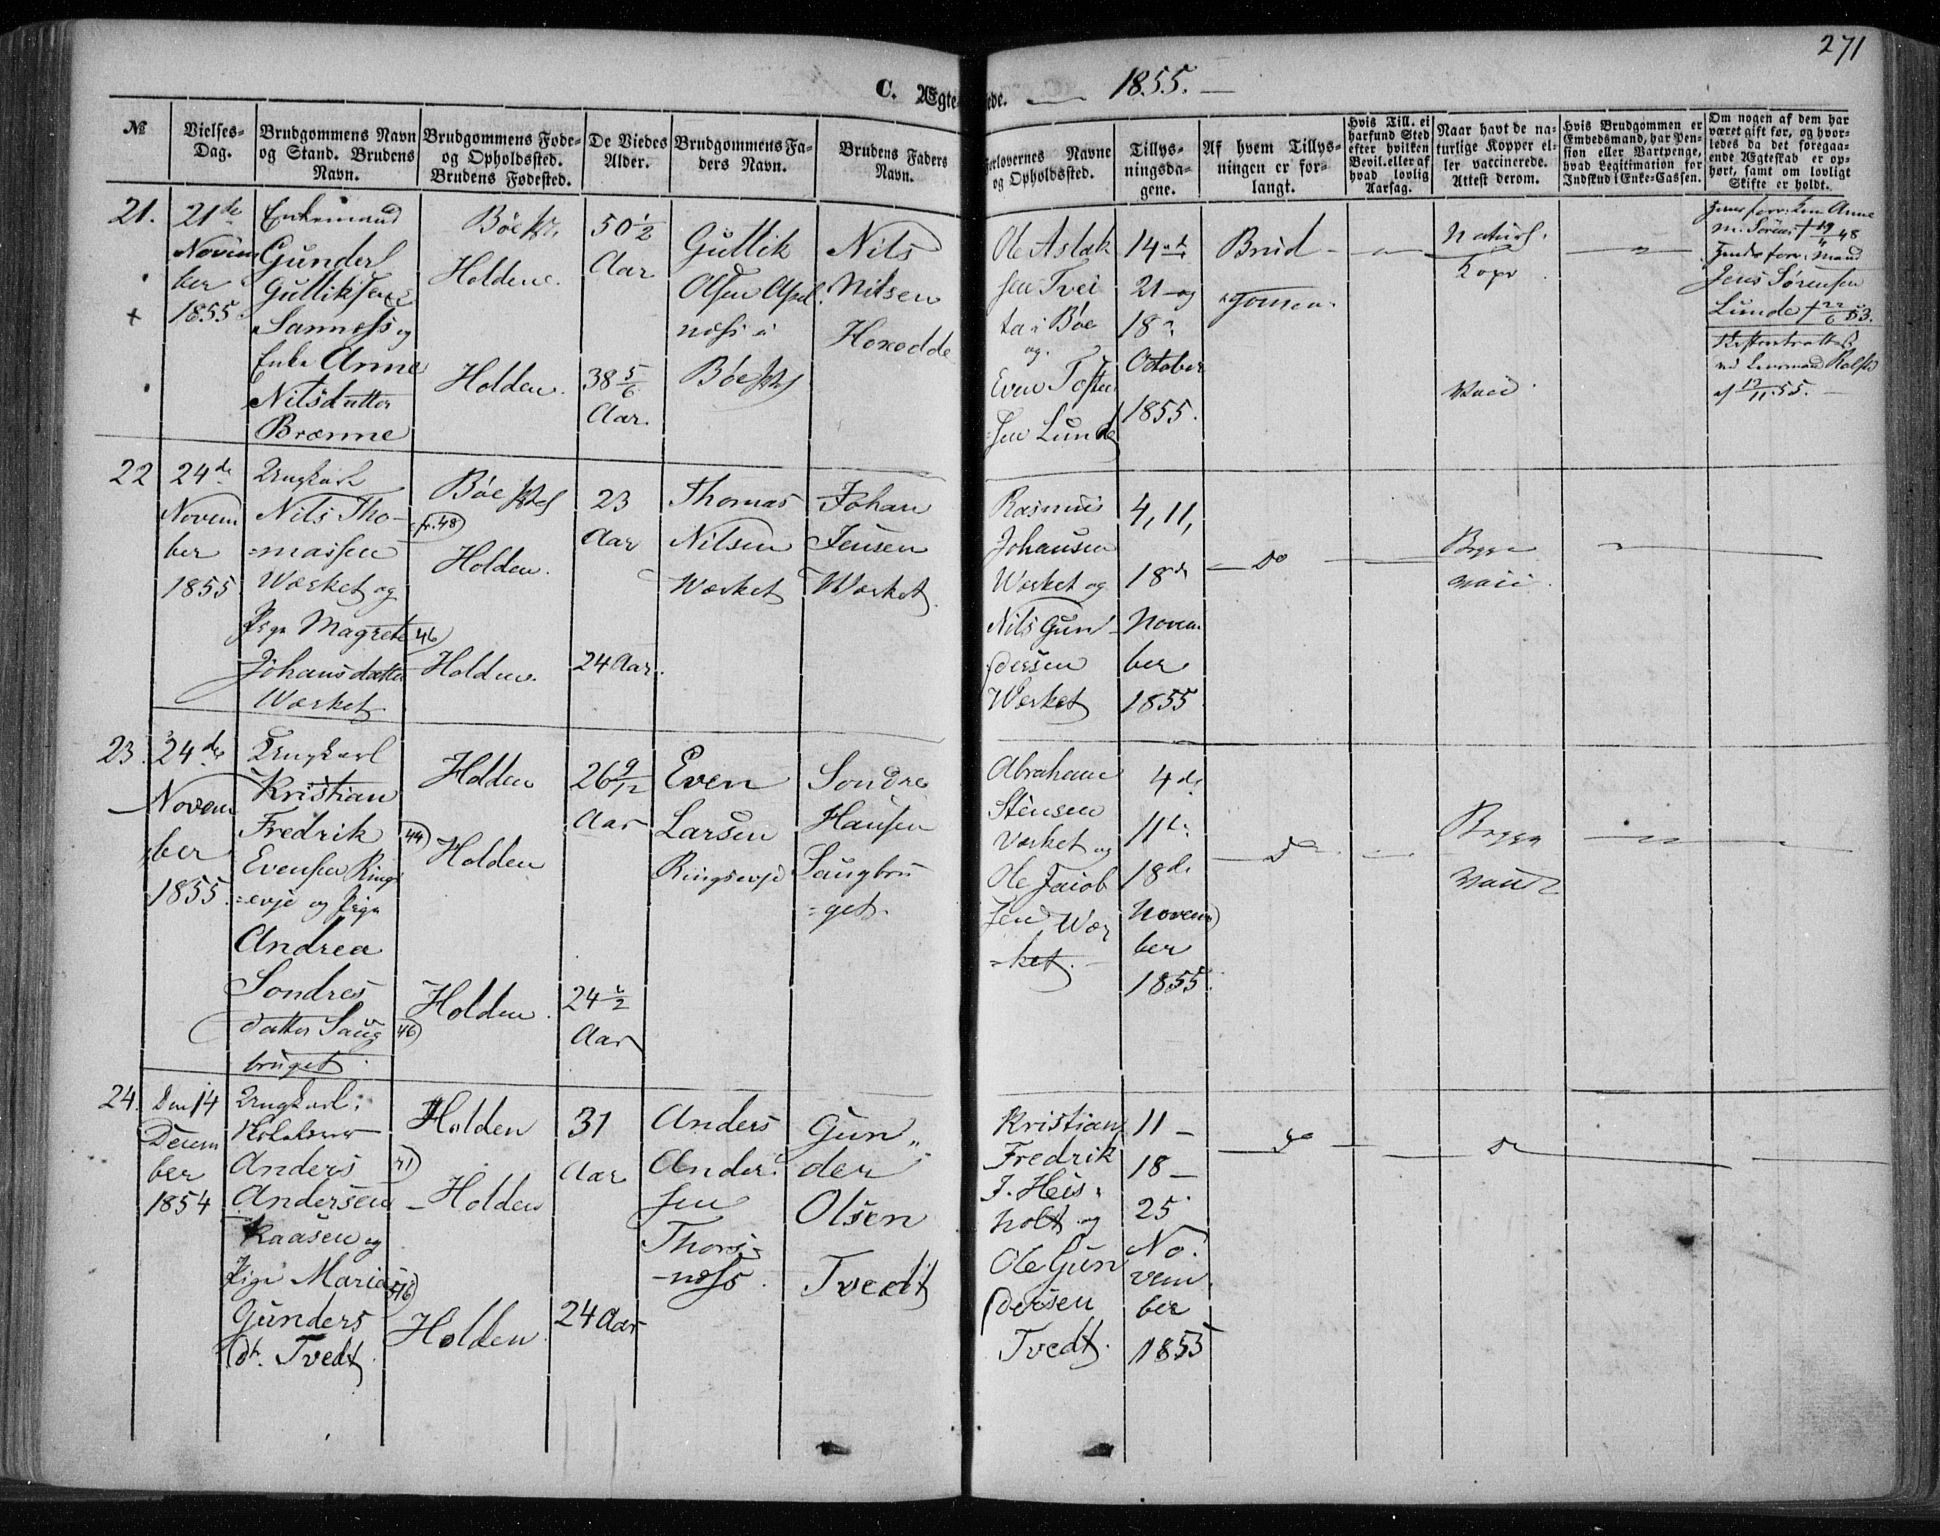 271
C. Ægteviede. — 1855. —
№
Vielses-Dag.
Brudgommens Navn og Stand. Brudens Navn.
Brudgommens Føde- og Opholdssted. Brudens Fødested.
De Viedes Alder.
Brudgommens Faders Navn.
Brudens Faders Navn.
Forlovernes Navne og Opholdssted.
Tillysningsdagene.
Af hvem Tillysningen er forlangt.
Hvis Till. ei har fund Sted efter hvilken Bevil. eller af hvad lovlig Aarsag.
Naar havt de naturlige Kopper eller vaccinerede. Attest derom.
Hvis Brudgommen er Embedsmand, har Pension eller Vartpenge, hvad Legitimation for Indskud i Enke-Cassen.
Om nogen af dem har været gift før, og hvorledes da det foregaaende Ægteskab er ophørt, samt om lovligt Skifte er holdt.
21.
21de
Novem
ber
1855
Enkemand
Gunder
Gulliksen
Sanness og
Enke Anne
Nilsdatter
Brenne
Bøe
Holden.
Holden.
50 1/2
Aar
38 5/6
Aar.
Gullik
Olsen
Bøe
Nils
Nilsen
Ole Aslak
sen Tvei
ta i Bøe
og
Even
sen Lunde
14
21 og
18
October
1855.
Brud
gommen.
Naturl.
Kopr
Vacc.
Jens Sørensen
Lunde † 22/6 53.
22
24de
Novem
ber
1855
Ungkarl
Nils Tho-
=massen
Værket og
Pige Magrete
Johansdatter
Værket
Bøe
fr. 48)
Holden.
46)
Holden.
23
Aar
24 Aar.
Thomas
Nilsen
Værket
Johan
Jensen
Værket
Rasmus
Johansen
Værket og
Nils Gun
dersen
Værket
4, 11,
18de
Novem
ber
1855
Do
Begge
vacc.
23.
24de
Novem
ber
1855.
Ungkarl
Kristian
Fredrik
Evensen Rings
=evje og Pige
Andrea
Sondres
datter Saug
bruget
Holden
44)
Holden
Holden.
46)
26 9/12
Aar
24 1/2
Aar
Even
Larsen
Ringsevje
Sondre
Hansen
Saugbru
=get.
Abraham
Stensen
Værket og
Ole Jacob
sen Vær
=ket.
4de
11te
18de
Novem
ber
1855.
Do
Begge
vacc
24.
Den 14
Decem
ber
1854
Ungkarl
Anders
Andersen
Kaasen og
Pige Maria
Gunders
dt. Tvedt
Holden
41)
Holden
46)
Holden
31
Aar
24 Aar
Anders
Ander
sen
Thors
=næss
Gun
der
Olsen
Tvedt
Kristian
Fredrik
J. Heis
holt og
Ole Gun
dersen
Tvedt.
11 —
18 —
25
No
vem
ber
1855
Do
Do